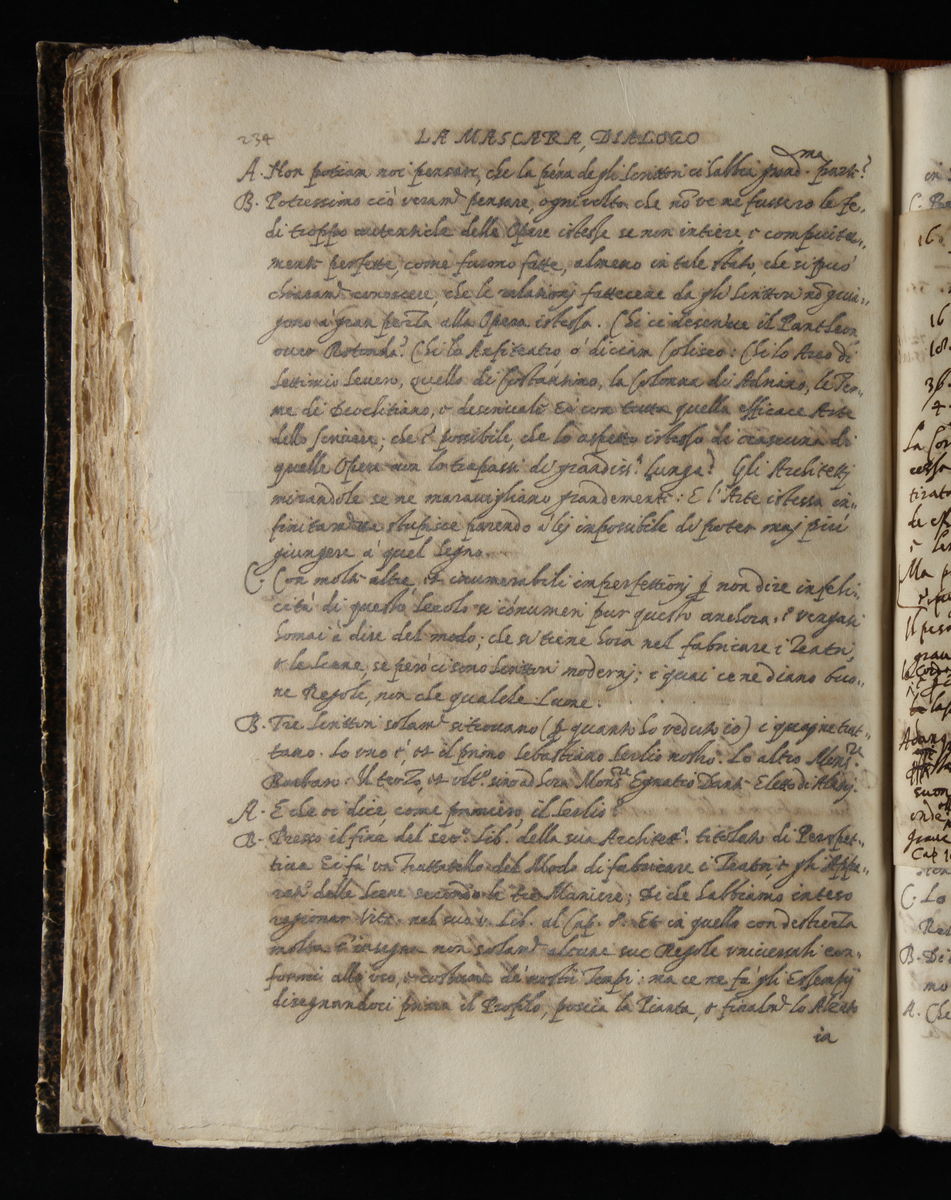 234
LA MASCARA, DIALOGO
A. Non potiam noi pensare, che la pēna de gli Scrittori ci habbia grand.ma parte?
B. Potressimo ciò veram.te pensare, ogni volta che nō ve ne fussero le fe-
di troppo autentiche delle Opere istesse se non intiere e compiuta-
mente perfette, come furono fatte, almeno in tale stato, che si può
chiaram.te conoscere, che le relationj fatteceue da gli Scrittori nō giun-
gono a gran pezza alla Opera istessa. Chi ci descriue il Pantheon
ouer Rotonda? Chi lo Anfiteatro, ò diciam Coliseo: Chi lo Arco di
Settimio Seuero, quello di Costantino, la Colonna di Adriano, le Ter-
me di Diocletiano, e descriuale ei con tutta quella efficace Arte
dello scriuere, che è possibile, che lo aspetto istesso di ciascuna di
quelle Opere non lo trapassi di grandiss.a lunga? Gli Architettj
mirandole se ne marauigliano grandemente: E l'Arte istessa in-
finitam.te ne stupisce parendo a lej impossibile di poter maj più
giungere a quel segno.
C. Con molte altre, et inumerabili imperfettionj p non dire infeli-
cità di questo secolo si cōnumeri pur questo anchora, e vengasi
homai à dire del modo, che si tiene hora nel fabricare i Teatri,
e le Scene, se però ci sono Scrittori modernj; i quai ce ne diano buo-
ne Regole, non che qualche Lume.
B. Tre Scrittori solam.te si trouano (p quanto ho veduto io) i quai ne trat-
tano. Lo uno è, et il primo Sebastiano Serlio nostro. Lo altro Mons.re
Barbaro. Il terzo, et vlt.o sino ad hora Mons.re Egnatio Dante Eletto di Alatrj.
A. E che ci dice, come primiero, il Serlio?
B. Presso il fine del sec.o Lib. della sua Architett.a titolato di Perspet-
tiua Ei fà vn Trattatello del Modo di fabricare i Teatri e gli Appa-
rati delle Scene secondo le tre Maniere, di che habbiamo inteso
ragionar Vitr. nel suo v. Lib. al Cap. 8. Et in quello con destrezza
molta c'insegna non solam.te alcune sue Regole vniuersali con-
formi allo vso, e costume de' nostri Tempi: ma ce ne fà gli Essempij
disegnandoci prima il Profilo, poscia la Pianta, e finalm.te lo Alzato
in
16
16
108
36
4
La Cor
tirato
Ma p
Il peso
grau
suon
graue
Cap
C. Lo
B. De
mo
A. Che